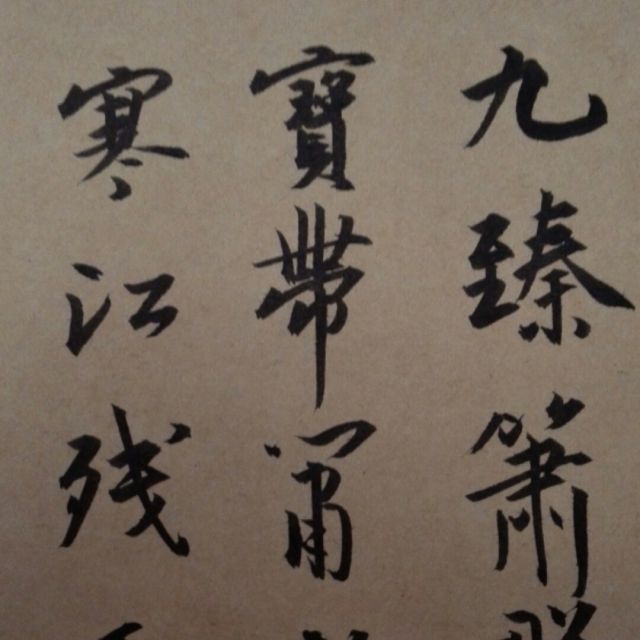 九臻簫
寶帶甬
寒江残